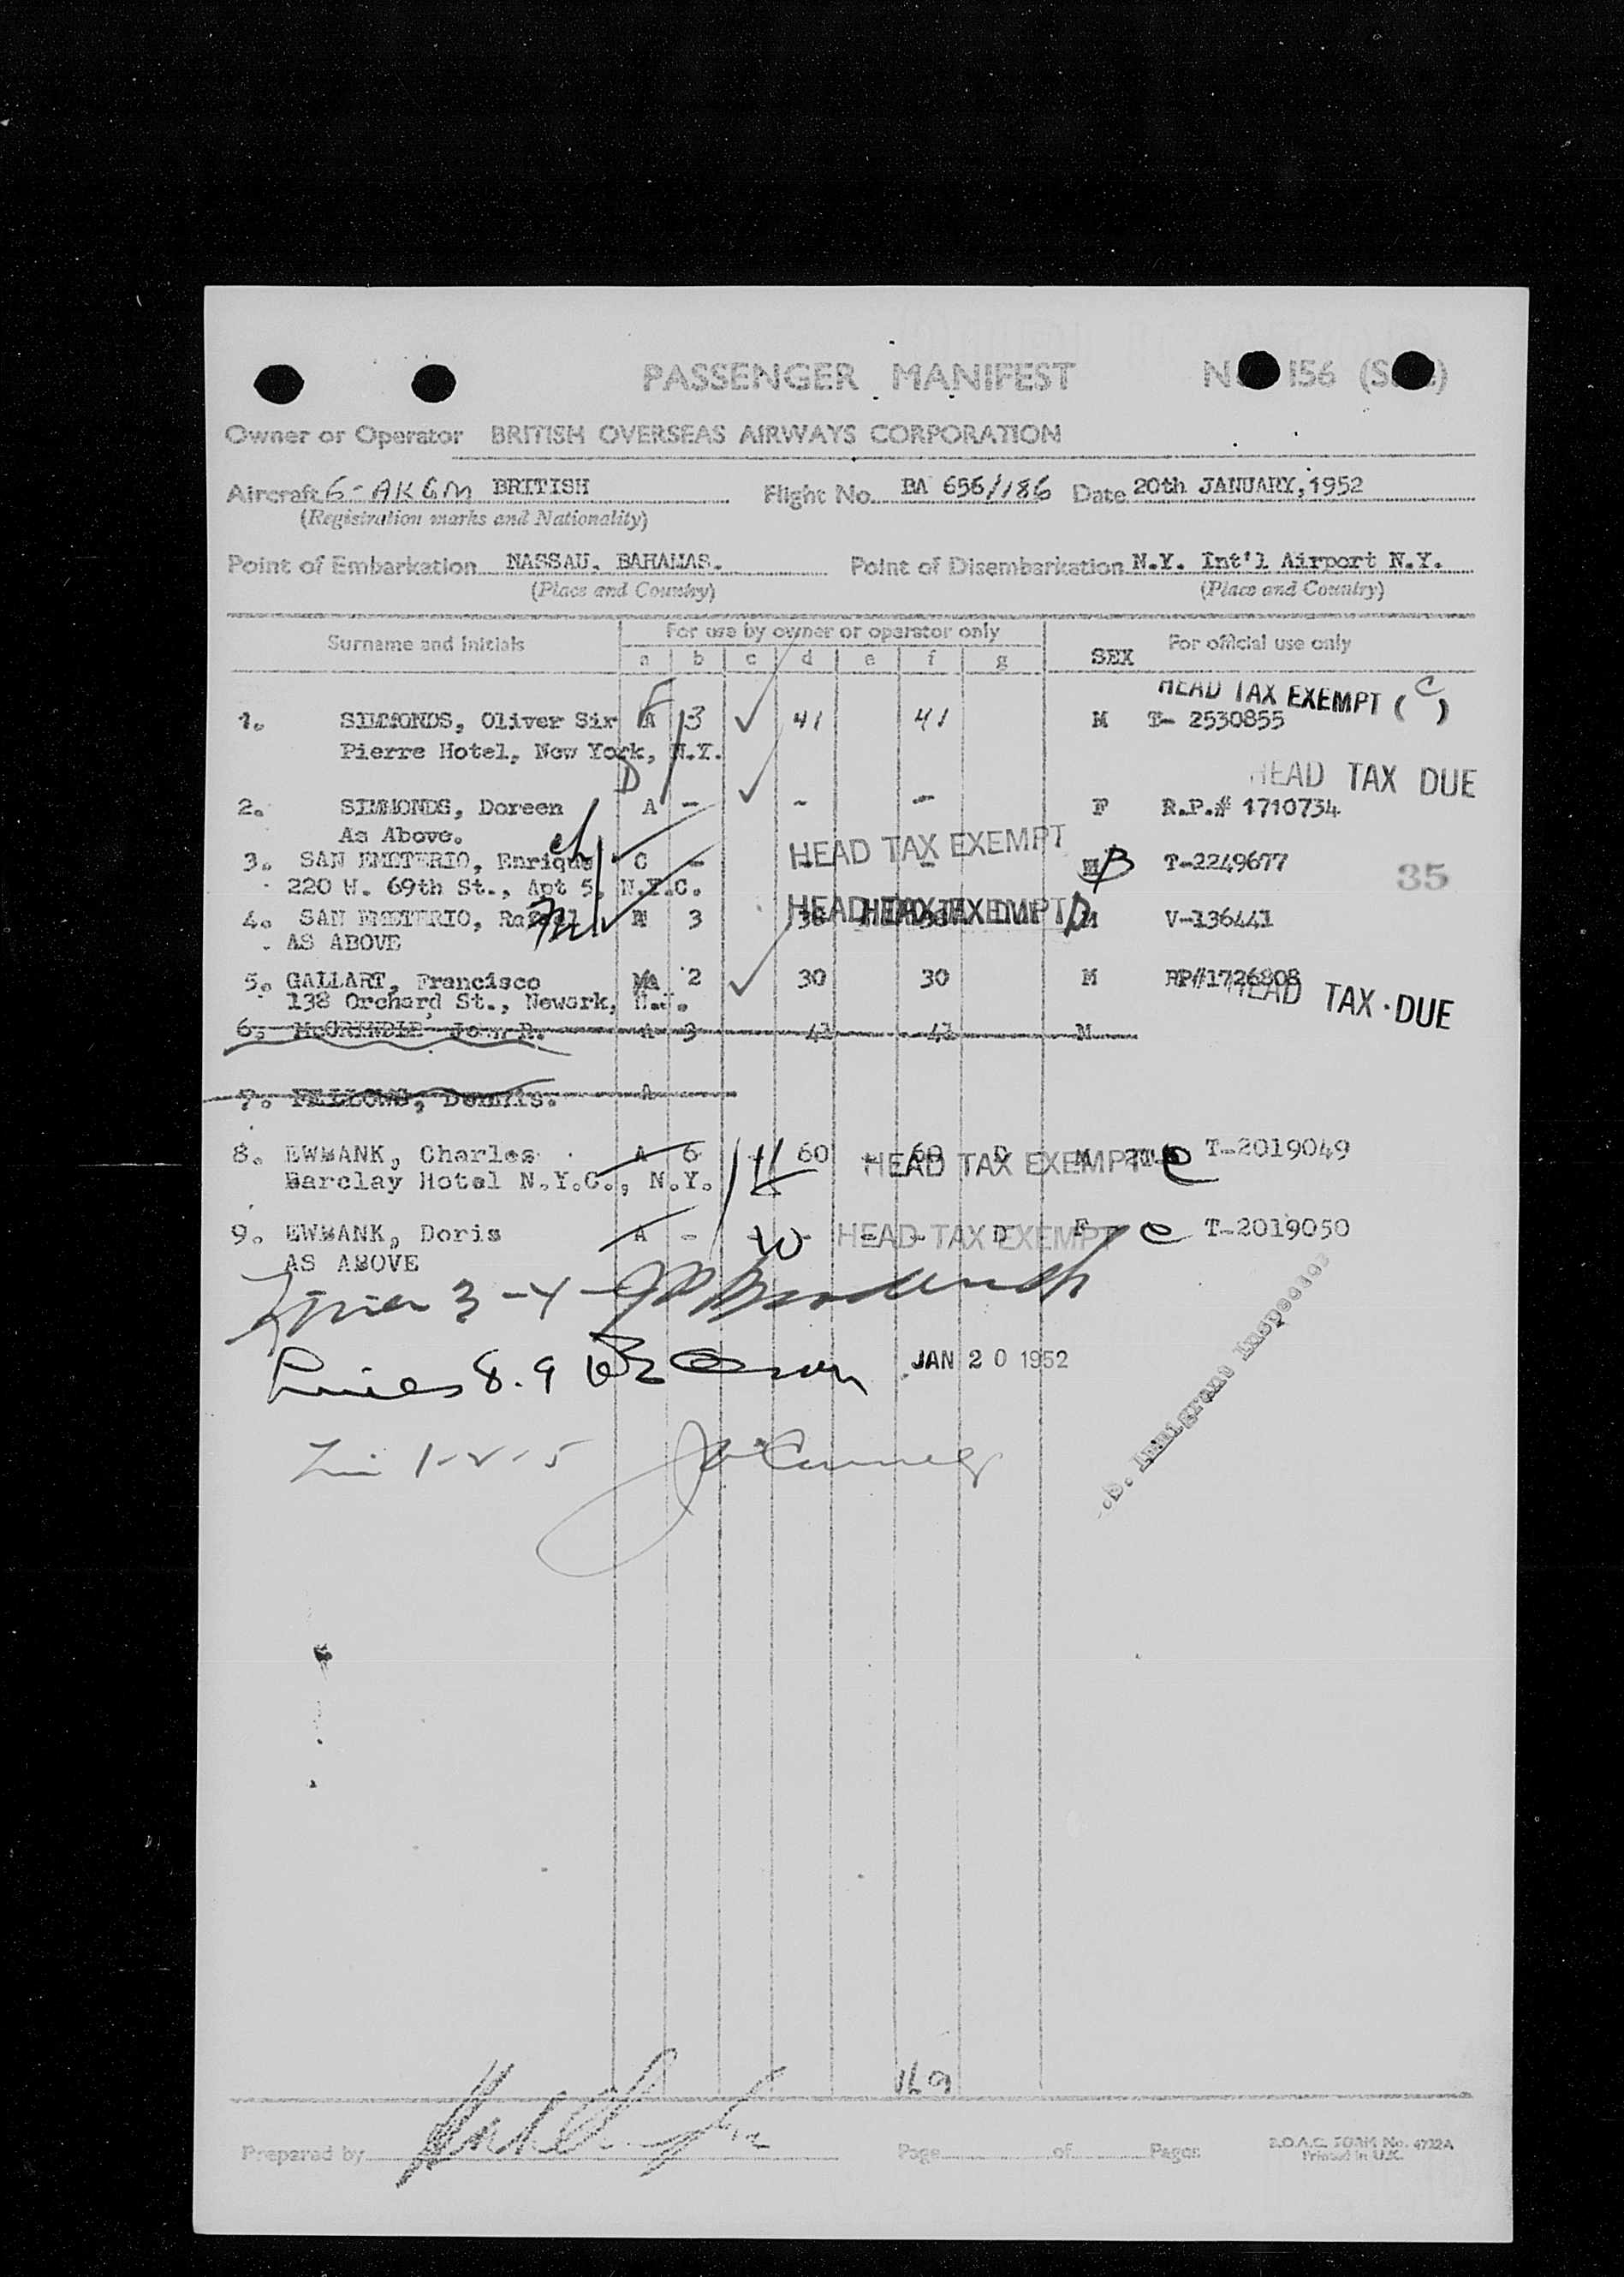 PASSENGER MANIFEST
156
Owner or Operator BRITISH OVERSEAS AIRWAYS CORPORATION
Aircraft G-AKGM BRITISH Flight No. BA 656/186 Date 20th JANUARY, 1952
(Registration marks and Nationality)
Point of Embarkation NASSAU. BAHAMAS. Point of Disembarkation N.Y. Int'l Airport N.Y.
(Place and Country) (Place and Country)
Surname and initials For use by owner or operator only SEX For official use only
a b c d e f g
HEAD TAX EXEMPT (C)
1. SIMMONDS, Oliver Sir A 3 41 41 M T- 2530855
Pierre Hotel, New York, N.Y.
D
HEAD TAX DUE
2. SIMMONDS, Doreen A - - - F R.P.# 1710734
As Above.
HEAD TAX EXEMPT
3. SAN EMETERIO, Enrique C - - - M B T-2249677
220 W. 69th St., Apt 5, N.Y.C.
35
4. SAN EMETERIO, 3 M V-136441
AS ABOVE
5. GALLART, Francisco 2 30 30 M RP#1726808
138 Orchard St., Newark, N.J.
HEAD TAX DUE
6. McCRINDLE, John R. A 3 41 41 M
7. FELLOWS, Dennis. A
8. EWBANK, Charles A 6 - 60 - 60 D M HEAD TAX EXEMPT C T-2019049
Barclay Hotel N.Y.C., N.Y.
9. EWBANK, Doris A - - - - - D F HEAD TAX EXEMPT C T-2019050
AS ABOVE
Lines 3-4-
Lines 8.9 JAN 20 1952
Immigrant Inspector
1-2-5
169
Prepared by Page of Pages
B.O.A.C. FORM No. 4732A
Printed in U.K.